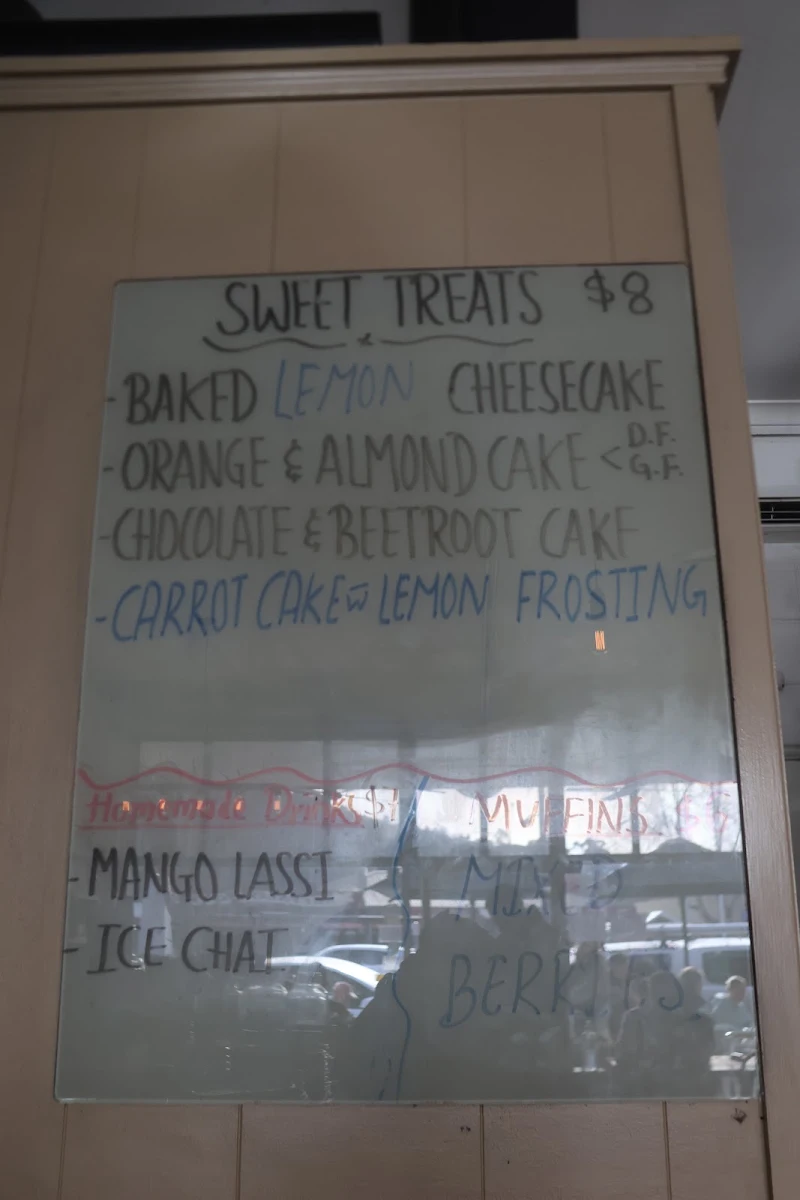 SWEET TREATS $8
- BAKED LEMON CHEESECAKE
- ORANGE & ALMOND CAKE < D.F. G.F.
- CHOCOLATE & BEETROOT CAKE
- CARROT CAKE w LEMON FROSTING
Homemade Drinks
- MANGO LASSI
- ICE CHAI
MUFFINS
MIXED
BERRIES